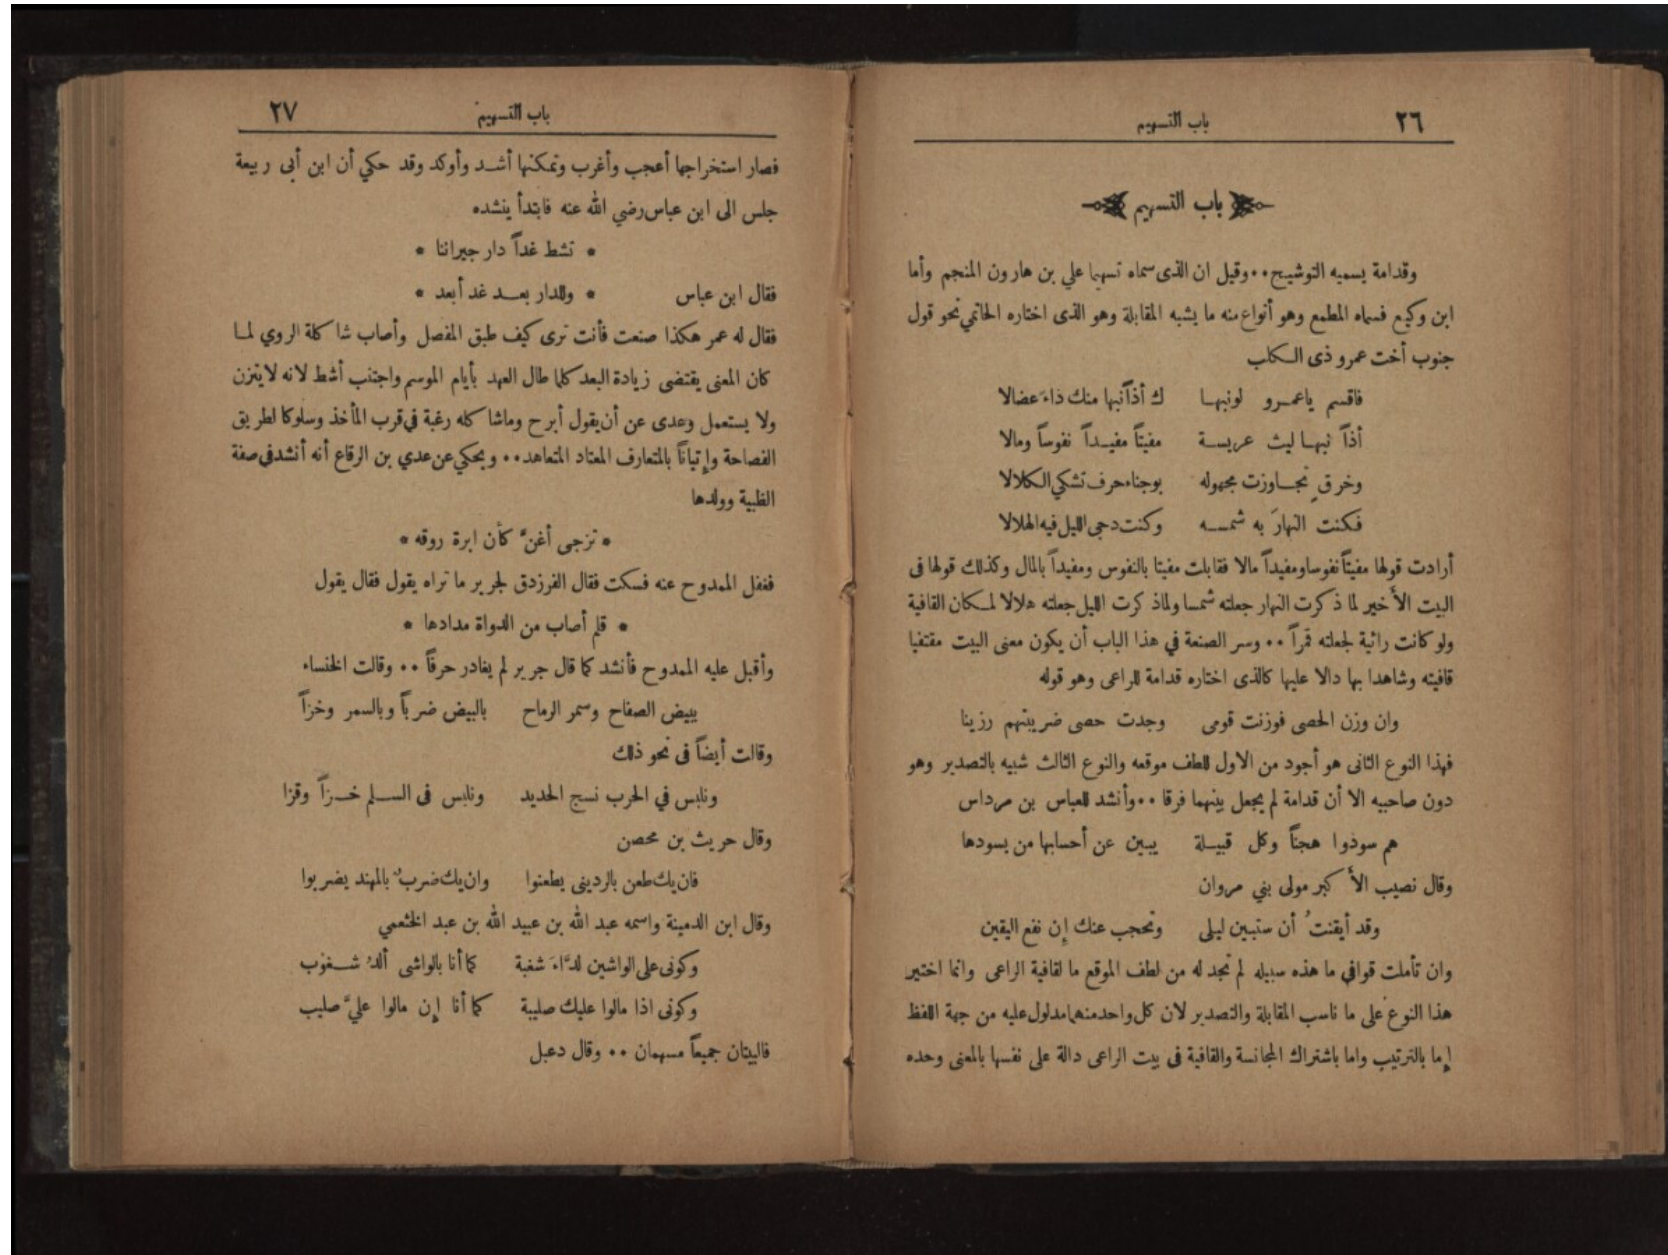 باب التسهيم ٢٦
باب التسهيم
وقدامة يسميه التوشيح ٠٠ وقيل ان الذى سماه تسهيما علي بن هارون المنجم وأما
ابن وكيع فسماه المطمع وهو أنواع منه ما يشبه المقابلة وهو الذى اختاره الحاتمي نحو قول
جنوب أخت عمرو ذى الكلب
فاقسم ياعمرو لونبها ك أذاً نبها منك داءَ عضالا
أذاً نبها ليث عريسة مفيتاً مفيداً نفوساً ومالا
وخرقٍ تجاوزت مجهوله بوجناء حرف تشكي الكلالا
فكنت النهارَ به شمسه وكنت دجى الليل فيه الهلالا
أرادت قولها مفيتاً نفوسا ومفيداً مالا فقابلت مفيتا بالنفوس ومفيداً بالمال وكذلك قولها فى
البيت الأخير لما ذكرت النهار جعلته شمسا ولما ذكرت الليل جعلته هلالا لمكان القافية
ولو كانت رائية لجعلته قمراً ٠٠ وسر الصنعة في هذا الباب أن يكون معنى البيت مقتفيا
قافيته وشاهدا بها دالا عليها كالذى اختاره قدامة للراعى وهو قوله
وان وزن الحصى فوزنت قومى وجدت حصى ضريبتهم رزينا
فهذا النوع الثانى هو أجود من الاول للطف موقعه والنوع الثالث شبيه بالتصدير وهو
دون صاحبيه الا أن قدامة لم يجعل بينهما فرقا ٠٠ وأنشد للعباس بن مرداس
هم سودوا هجناً وكل قبيلة يبين عن أحسابها من يسودها
وقال نصيب الأكبر مولى بني مروان
وقد أيقنتُ أن ستبين ليلى وتحجب عنك إن نفع اليقين
وان تأملت قوافي ما هذه سبيله لم تجد له من لطف الموقع ما لقافية الراعى وانما اختير
هذا النوع على ما ناسب المقابلة والتصدير لان كل واحد منهما مدلول عليه من جهة اللفظ
إما بالترتيب واما باشتراك المجانسة والقافية فى بيت الراعى دالة على نفسها بالمعنى وحده
باب التسهيم ٢٧
فصار استخراجها أعجب وأغرب وتمكنها أشد وأوكد وقد حكي أن ابن أبى ربيعة
جلس الى ابن عباس رضي الله عنه فابتدأ ينشده
* تشط غداً دار جيراننا *
فقال ابن عباس * وللدار بعد غد أبعد *
فقال له عمر هكذا صنعت فأنت ترى كيف طبق المفصل وأصاب شاكلة الروي لما
كان المعنى يقتضى زيادة البعد كلما طال العهد بأيام الموسم واجتنب أشط لانه لايتزن
ولا يستعمل وعدى عن أن يقول أبرح وماشاكله رغبة في قرب المأخذ وسلوكا لطريق
الفصاحة وإتياناً بالمتعارف المعتاد المتعاهد ٠٠ ويحكي عن عدي بن الرقاع أنه أنشد في صفة
الظبية وولدها
* تزجى أغنَّ كأن ابرة روقه *
فغفل الممدوح عنه فسكت فقال الفرزدق لجرير ما تراه يقول فقال يقول
* قلم أصاب من الدواة مدادها *
وأقبل عليه الممدوح فأنشد كما قال جرير لم يغادر حرفاً ٠٠ وقالت الخنساء
ببيض الصفاح وسمر الرماح بالبيض ضرباً وبالسمر وخزاً
وقالت أيضاً فى نحو ذلك
ونلبس في الحرب نسج الحديد ونلبس فى السلم خزاً وقزا
وقال حريث بن محصن
فان يك طعن بالردينى يطعنوا وان يك ضربٌ بالمهند يضربوا
وقال ابن الدمينة واسمه عبد الله بن عبيد الله بن عبد الخثعمي
وكونى على الواشين لدَّاءَ شغبة كما أنا بالواشى ألدُ شغوب
وكونى اذا مالوا عليك صليبة كما أنا إن مالوا عليَّ صليب
فالبيتان جميعاً مسهمان ٠٠ وقال دعبل